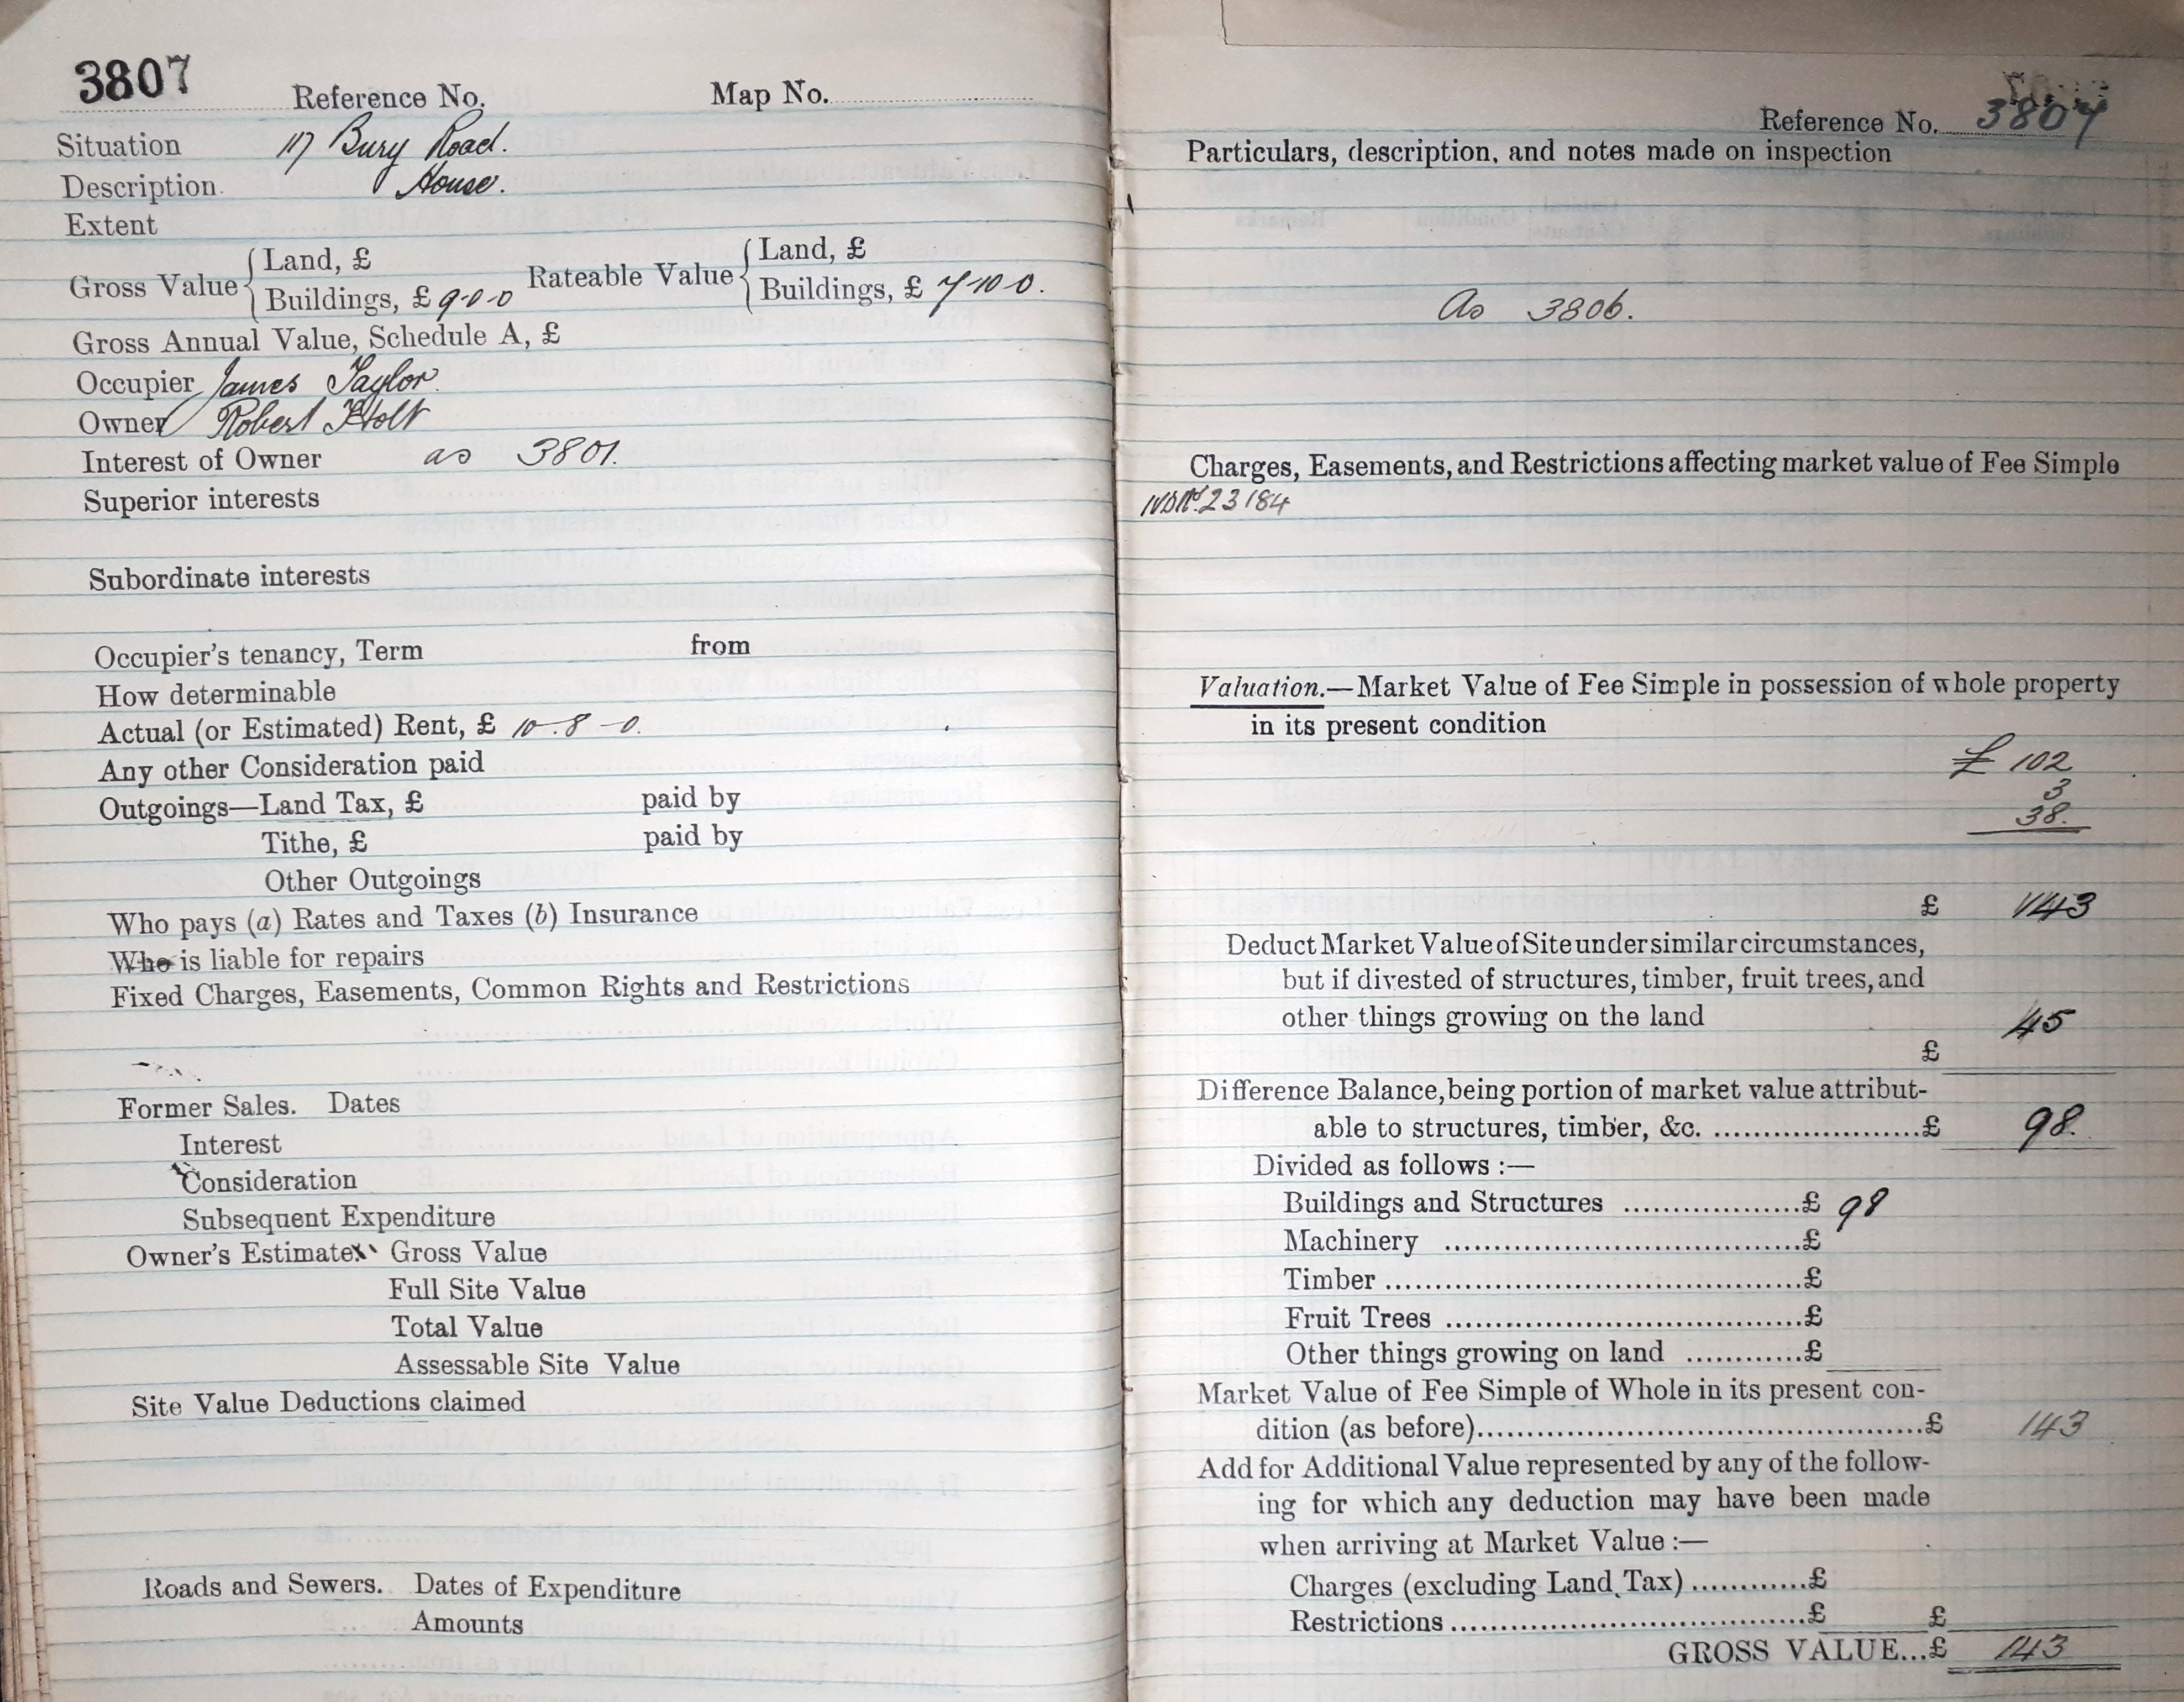 3807 Reference No. Map No.
Situation 117 Bury Road.
Description. House.
Extent
Gross Value { Land, £ Rateable Value { Land, £
Buildings, £ 9-0-0 Buildings, £ 7-10-0.
Gross Annual Value, Schedule A, £
Occupier James Taylor
Owner Robert Holt
Interest of Owner as 3801.
Superior interests
Subordinate interests
Occupier's tenancy, Term from
How determinable
Actual (or Estimated) Rent, £ 10-8-0.
Any other Consideration paid
Outgoings—Land Tax, £ paid by
Tithe, £ paid by
Other Outgoings
Who pays (a) Rates and Taxes (b) Insurance
Who is liable for repairs
Fixed Charges, Easements, Common Rights and Restrictions
Former Sales. Dates
Interest
Consideration
Subsequent Expenditure
Owner's Estimate Gross Value
Full Site Value
Total Value
Assessable Site Value
Site Value Deductions claimed
Roads and Sewers. Dates of Expenditure
Amounts
Reference No. 3807
Particulars, description, and notes made on inspection
As 3806.
Charges, Easements, and Restrictions affecting market value of Fee Simple
23184
Valuation.—Market Value of Fee Simple in possession of whole property
in its present condition
£ 102
3
38.
£ 143
Deduct Market Value of Site under similar circumstances,
but if divested of structures, timber, fruit trees, and
other things growing on the land 45
£
Difference Balance, being portion of market value attribut-
able to structures, timber, &c. ......................£ 98.
Divided as follows :—
Buildings and Structures ...................£ 98
Machinery ......................................£
Timber ............................................£
Fruit Trees ......................................£
Other things growing on land ............£
Market Value of Fee Simple of Whole in its present con-
dition (as before)................................................£ 143
Add for Additional Value represented by any of the follow-
ing for which any deduction may have been made
when arriving at Market Value :—
Charges (excluding Land Tax) ............£
Restrictions ......................................£ £
GROSS VALUE...£ 143